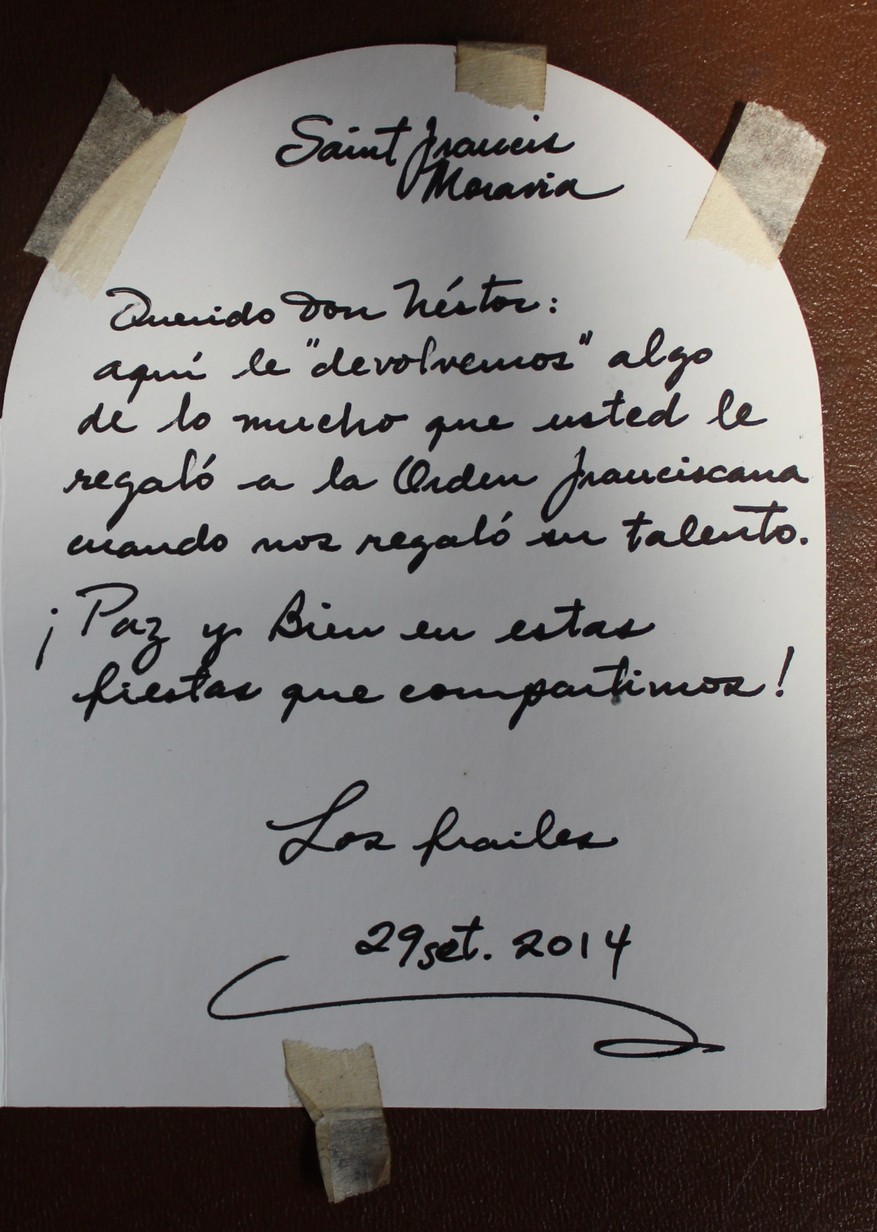 Saint Francis
Moravia
Querido Don Néstor:
aquí le "devolvemos" algo
de lo mucho que usted le
regaló a la Orden Franciscana
cuando nos regaló su talento.
¡Paz y Bien en estas
fiestas que compartimos!
Los frailes
29 set. 2014